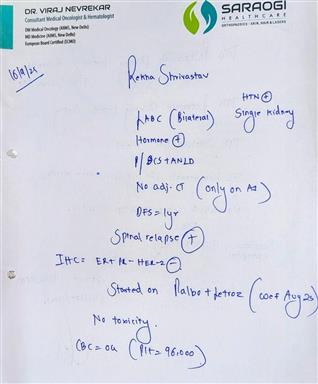 DR. VIRAJ NEVREKAR
Consultant Medical Oncologist & Hematologist
DM Medical Oncology (AIIMS, New Delhi)
MD Medicine (AIIMS, New Delhi)
European Board Certified (ECMO)
SARAOGI
HEALTHCARE
ORTHOPAEDICS | SKIN, HAIR & LASERS
Rekha Shrivastav
HTN +
Single Kidney
LABC (Bilateral)
Hormone +
P/BCS + ANLD
No adj. CT (only on AI)
DFS = 1yr
Spinal relapse +
IHC = ER+ PR- HER-2 -
Started on Palbo + Letroz (wef Aug 23)
No toxicity.
CBC = ok (Plt = 96,000)